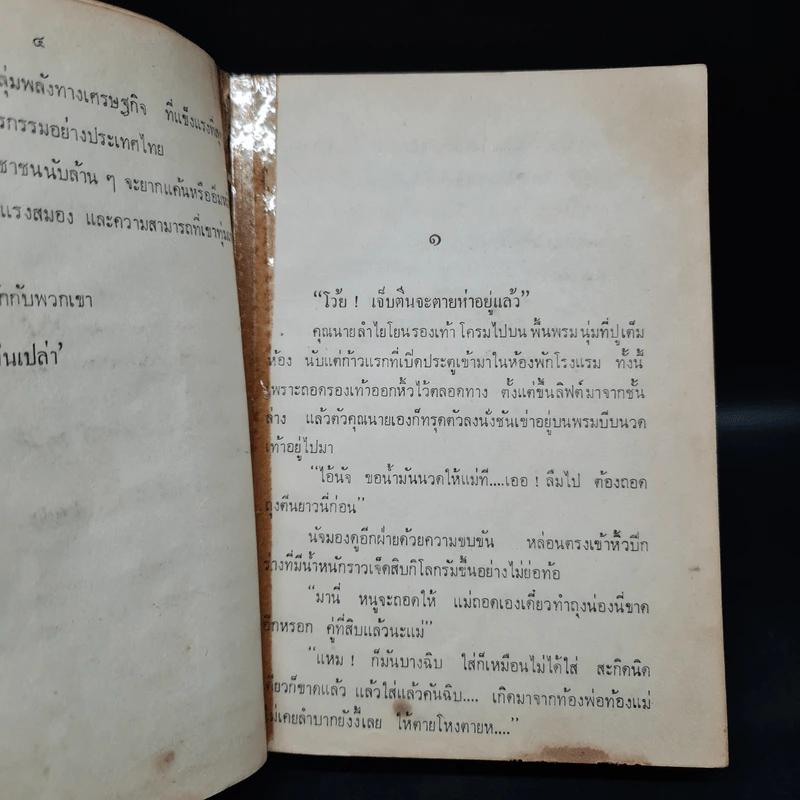 ๔
ลุ่มพลังทางเศรษฐกิจ ที่แข็งแรงที่สุด
รกรรมอย่างประเทศไทย
ชาชนนับล้าน ๆ จะยากแค้นหรืออิ่มหมี
แรงสมอง และความสามารถที่เขาทุ่ม
กกับพวกเขา
ินเปล่า’
๑
“โว้ย ! เจ็บตีนจะตายห่าอยู่แล้ว”
คุณนายลำไยโยนรองเท้า โครมไปบน พื้นพรม นุ่มที่ปูเต็ม
ห้อง นับแต่ก้าวแรกที่เปิดประตูเข้ามาในห้องพักโรงแรม ทั้งนี้
เพราะถอดรองเท้าออกหิ้วไว้ตลอดทาง ตั้งแต่ขึ้นลิฟต์มาจากชั้น
ล่าง แล้วตัวคุณนายเองก็ทรุดตัวลงนั่งชันเข่าอยู่บนพรมบีบนวด
เท้าอยู่ไปมา
“ไอ้นัจ ขอน้ำมันนวดให้แม่ที....เออ ! ลืมไป ต้องถอด
ถุงตีนยาวนี่ก่อน”
นัจมองดูอีกฝ่ายด้วยความขบขัน หล่อนตรงเข้าหิ้วปีก
ร่างที่มีน้ำหนักราวเจ็ดสิบกิโลกรัมขึ้นอย่างไม่ย่อท้อ
“มานี่ หนูจะถอดให้ แม่ถอดเองเดี๋ยวทำถุงน่องนี่ขาด
อีกหรอก คู่ที่สิบแล้วนะแม่”
“แหม ! ก็มันบางฉิบ ใส่ก็เหมือนไม่ได้ใส่ สะกิดนิด
เดียวก็ขาดแล้ว แล้วใส่แล้วคันฉิบ.... เกิดมาจากท้องพ่อท้องแม่
ไม่เคยลำบากยังงี้เลย ให้ตายโหงตายห....”